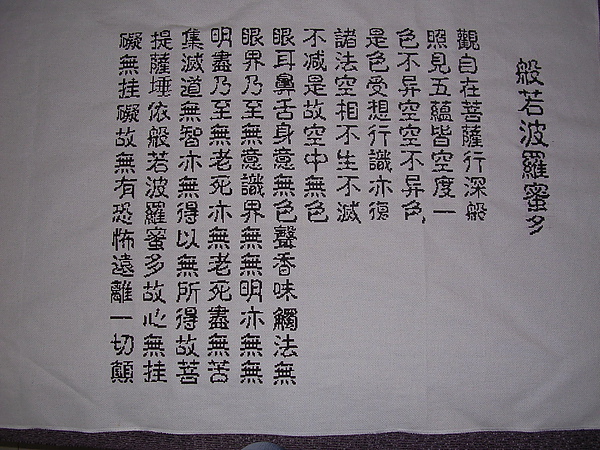 般若波羅蜜多
觀自在菩薩行深般
照見五蘊皆空度一
色不异空空不异色
是色受想行識亦復
諸法空相不生不滅
不减是故空中無色
眼耳鼻舌身意無色聲香味觸法無
眼界乃至無意識界無無明亦無無
明盡乃至無老死亦無老死盡無苦
集滅道無智亦無得以無所得故菩
提薩埵依般若波羅蜜多故心無挂
礙無挂礙故無有恐怖遠離一切顛